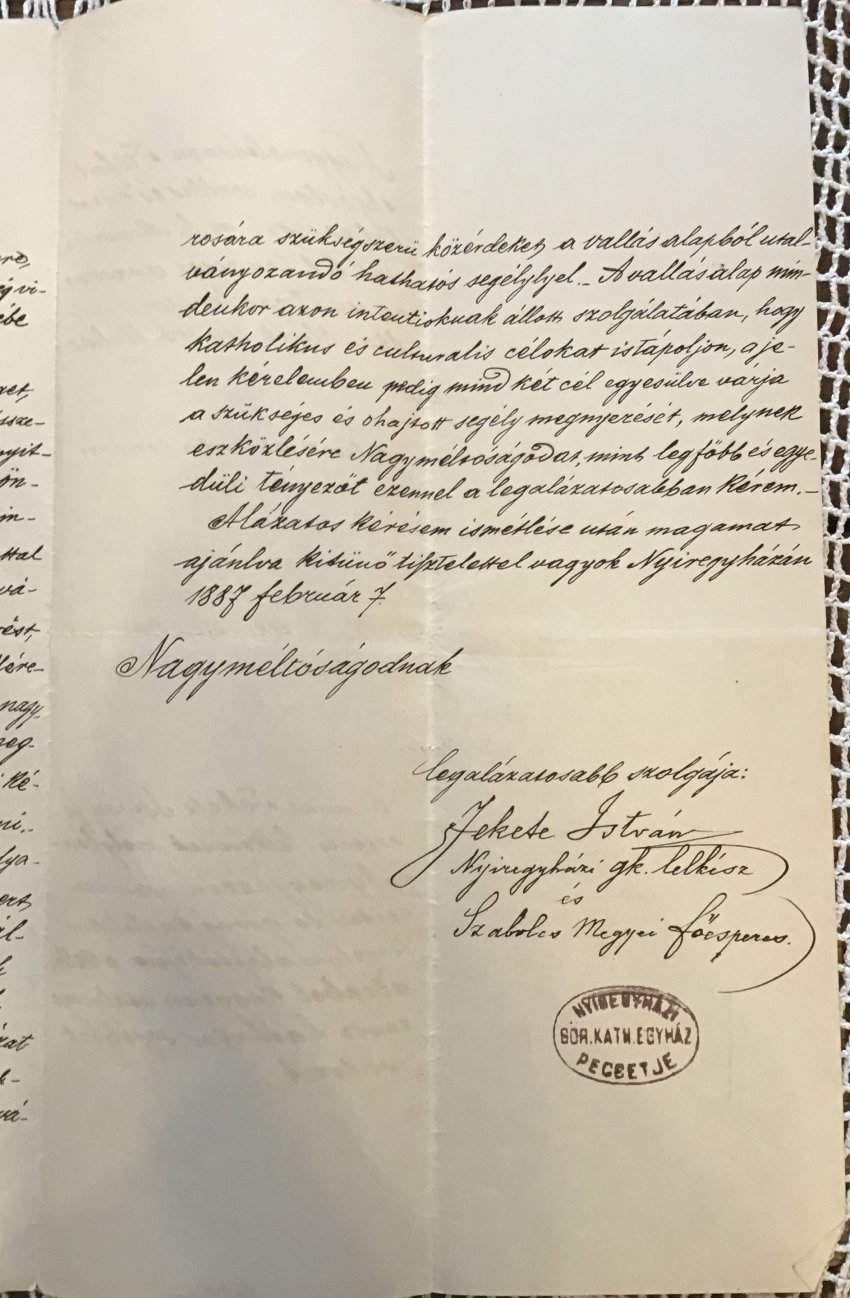 rosára szükségszerü közérdeket, a vallás alapból utal-
ványozandó hathatós segélylyel. – A vallás alap min-
denkor azon intentioknak állott szolgálatában, hogy
katholikus és culturalis célokat istápoljon, a je-
len kérelemben pedig mind két cél egyesülve várja
a szükséjes és ohajtott segély megnyerését, melynek
eszközlésére Nagyméltóságodat, mint legfőbb és egye-
düli tényezőt ezennel a legalázatosabban kérem. –
Alázatos kérésem ismétlése után magamat
ajánlva kitünő tisztelettel vagyok Nyiregyházán
1887 február 7.
Nagyméltóságodnak
legalázatosabb szolgája:
Fekete István
Nyiregyházi gk. lelkész
és
Szabolcs Megyei főesperes.
GÖR. KATH. EGYHÁZ
PECSETJE
ébe
ön-
in-
ttal
vá-
nagy-
ké-
lya-
vá-